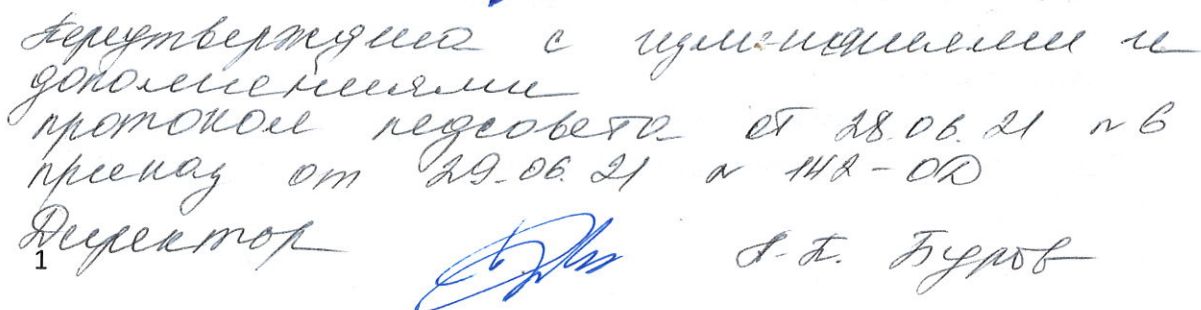 Переутверждена с изменениями и
дополнениями
протокол педсовета от 28.06.21 № 6
приказ от 29.06.21 № 142-ОД
Директор А.П. Буров
1